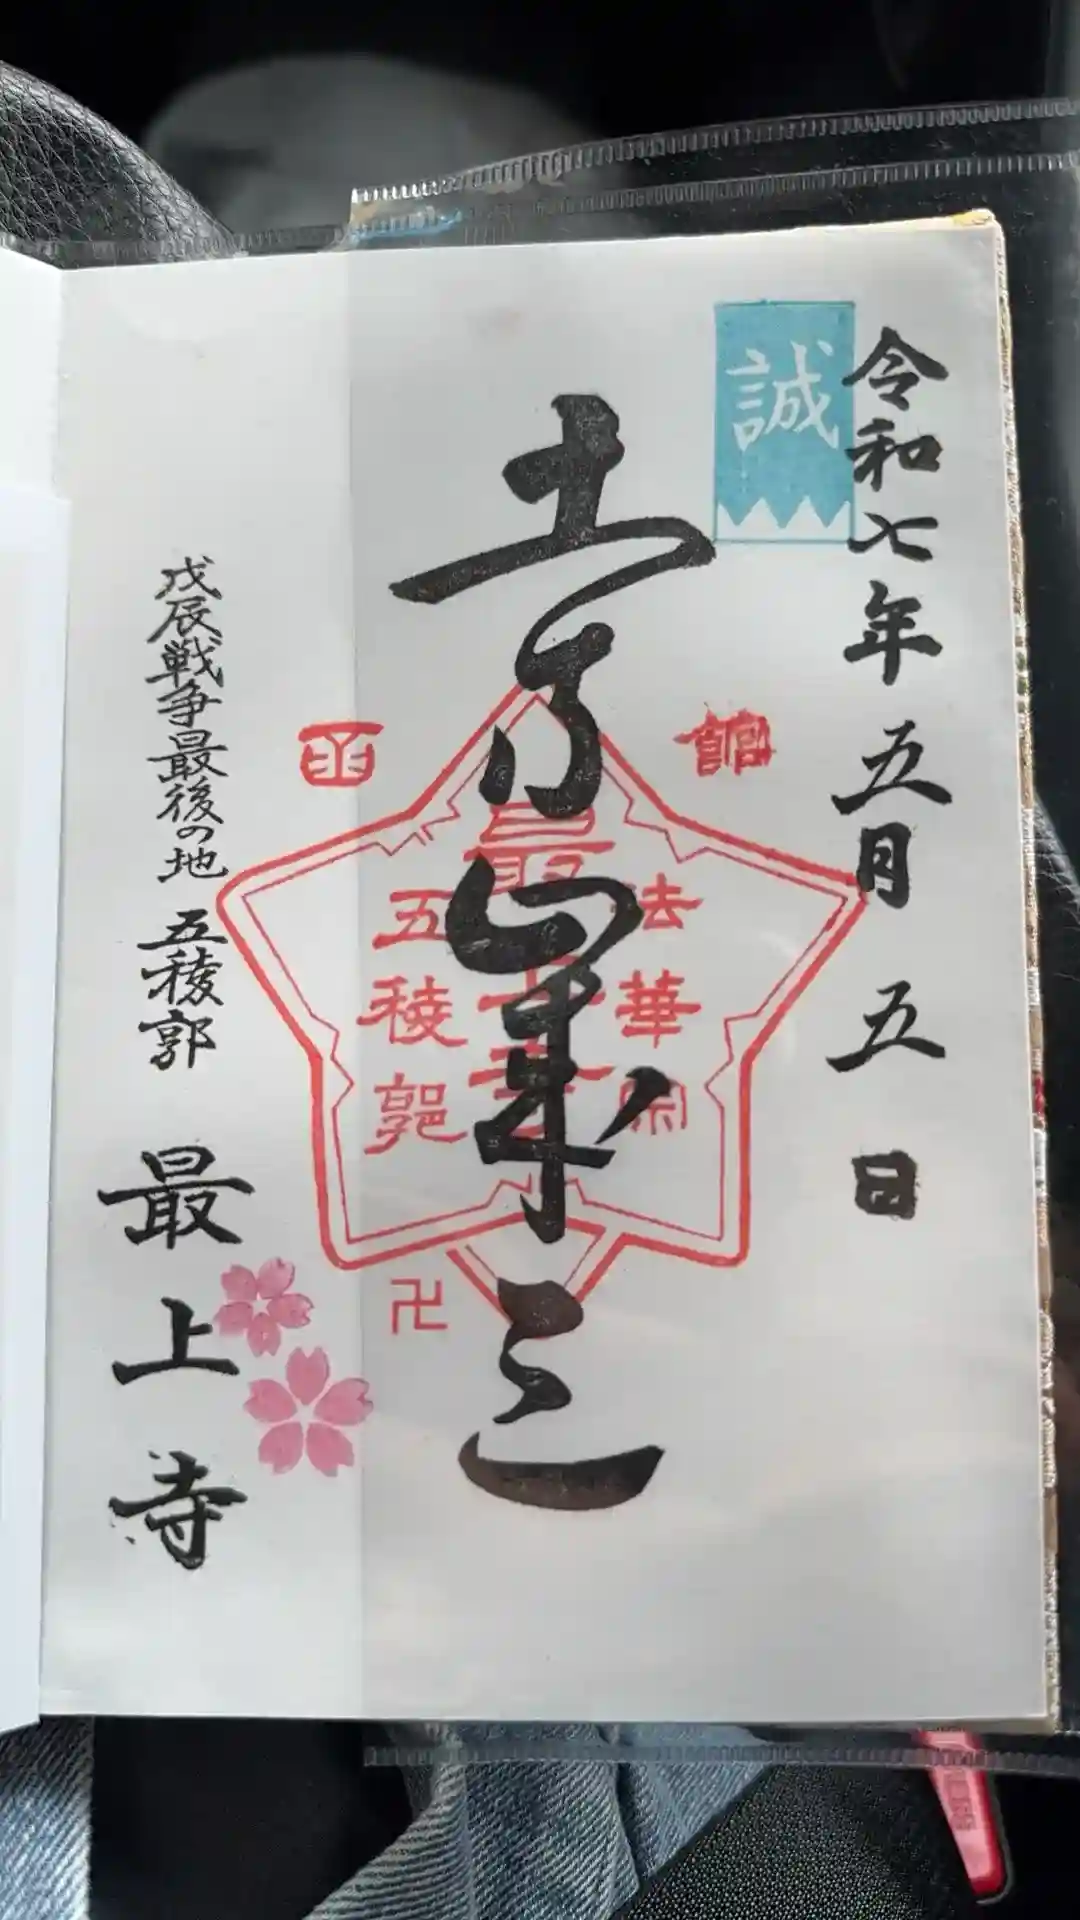 令和七年 五月 五 日
誠
土方歳三
函館
法華宗
最上寺
五稜郭
卍
戊辰戦争最後の地 五稜郭 最上寺